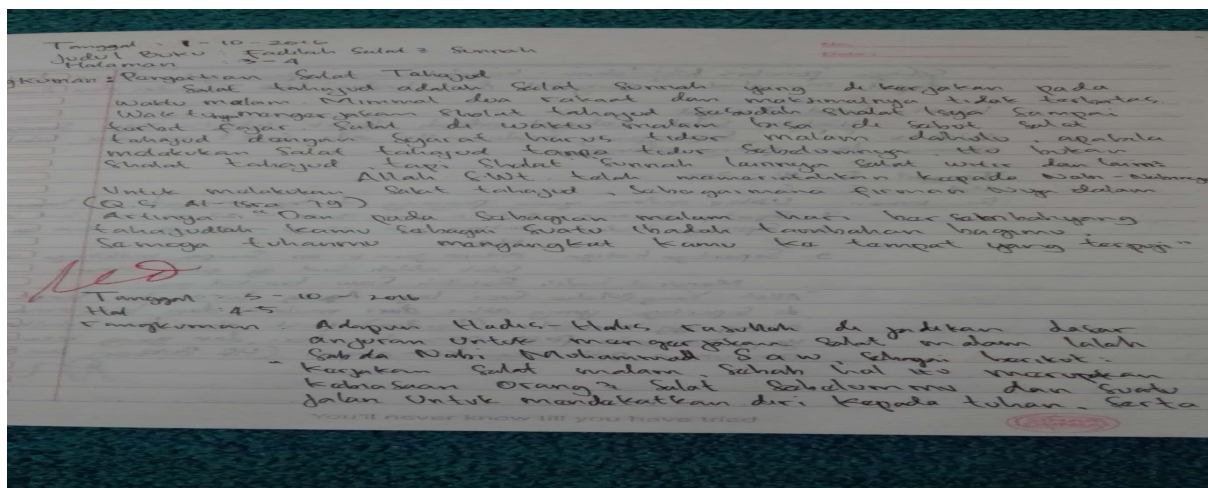 Tanggal : 1 - 10 - 2016
Judul Buku : Fadilah Salat 2 Sunnah
Halaman : 3 - 4
gkuman : Pengertian Salat Tahajud
Salat tahajud adalah Salat Sunnah yang di kerjakan pada
waktu malam Minimal dua rakaat dan maksimalnya tidak terbatas
Waktu mengerjakan Sholat tahajud Sesudah Shalat Isya Sampai
terbit Fajar. Salat di waktu malam bisa di sebut Salat
tahajud dengan Syarat harus tidur malam dahulu, apabila
melakukan Salat tahajud tanpa tidur Sebelumnya itu bukan
Shalat tahajud tapi Shalat Sunnah lainnya Salat witir dan lain2
Allah SWT telah memerintahkan kepada Nabi-Nabinya
Untuk melakukan Salat tahajud, Sebagaimana firman Nya dalam
(Q S Al-Isra 79)
Artinya : "Dan pada Sebagian malam hari bersembahyang
tahajudlah kamu Sebagai Suatu ibadah tambahan bagimu.
Semoga tuhanmu mengangkat kamu ke tempat yang terpuji"
Tanggal : 5 - 10 - 2016
Hal : 4-5
rangkuman : Adapun Hadis-Hadis rasullah di jadikan dasar
anjuran Untuk mengerjakan Salat malam ialah
Sabda Nabi Muhammad Saw, Sebagai berikut :
- Kerjakan Salat malam, Sebab hal itu merupakan
kebiasaan Orang2 Salat Sebelummu dan Suatu
jalan Untuk mendekatkan diri kepada tuhan, Serta
You'll never know till you have tried